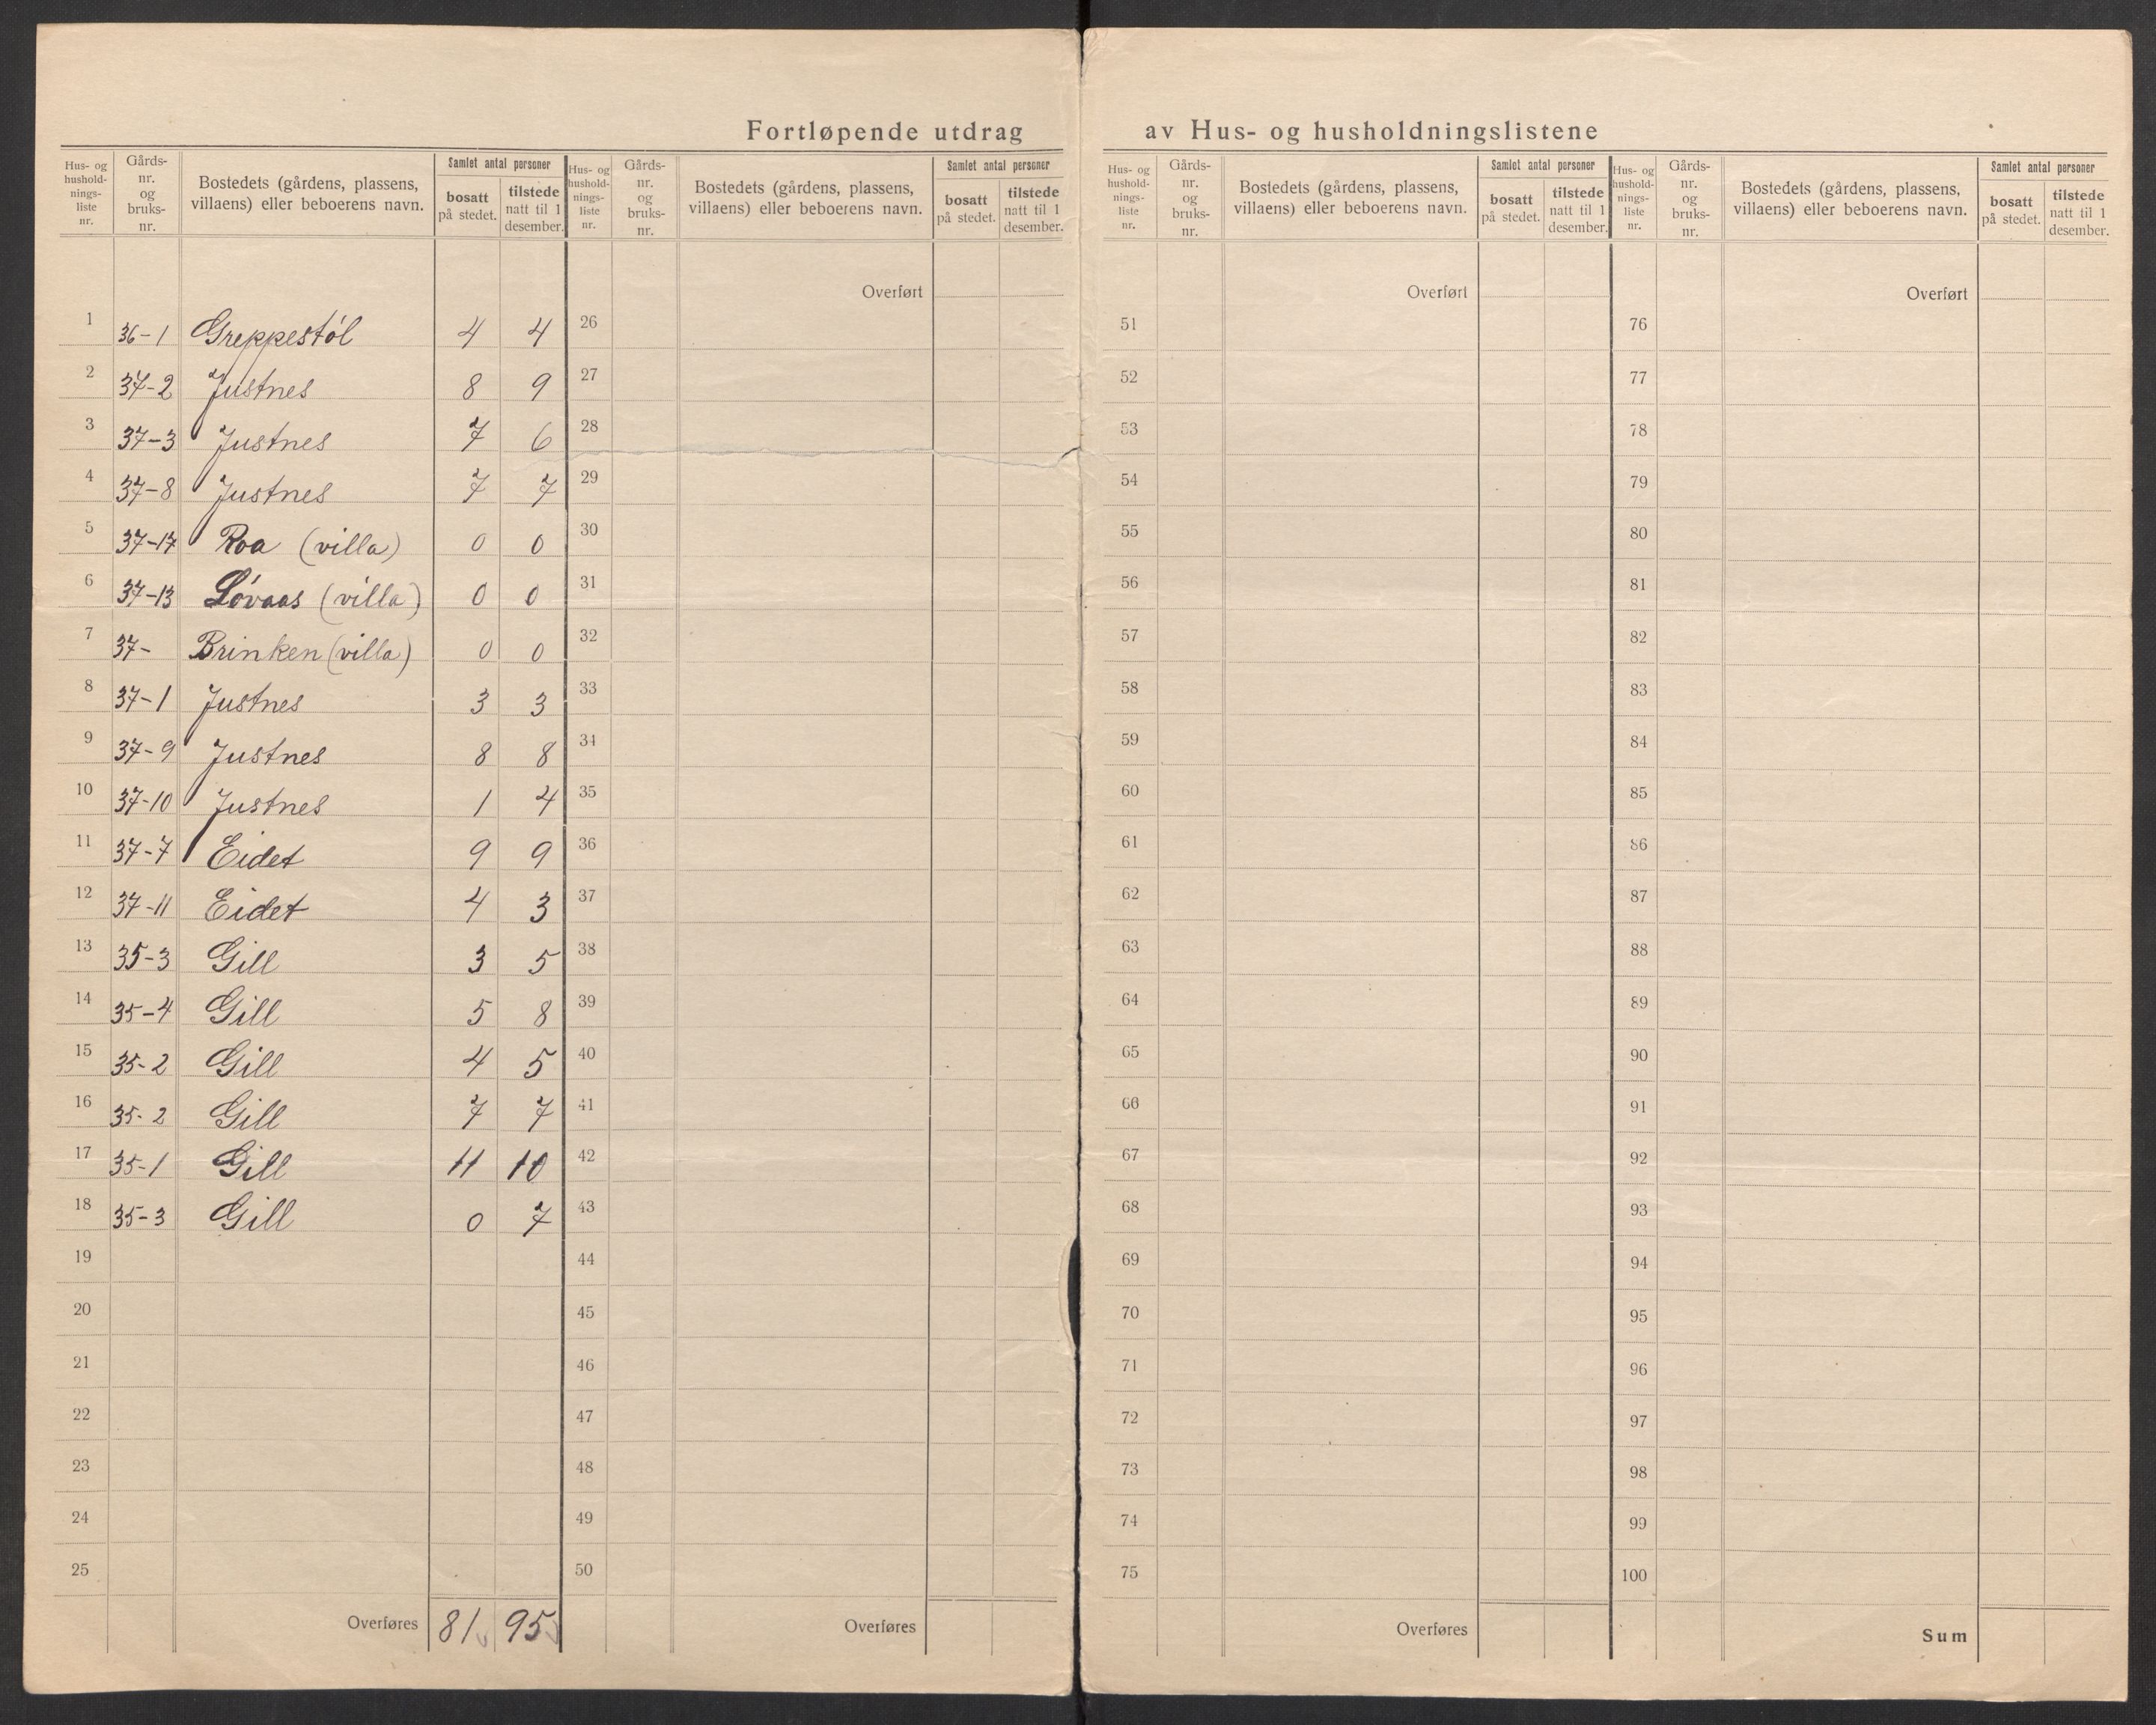 Fortløpende utdrag av Hus- og husholdningslistene
Hus- og hushold-nings-liste nr. Gårds-nr. og bruks-nr. Bostedets (gårdens, plassens, villaens) eller beboerens navn. Samlet antal personer bosatt på stedet. tilstede natt til 1 desember.
1 36-1 Greppestøl 4 4
2 37-2 Justnes 8 9
3 37-3 Justnes 7 6
4 37-8 Justnes 7 7
5 37-17 Roa (villa) 0 0
6 37-13 Løvaas (villa) 0 0
7 37- Brinken (villa) 0 0
8 37-1 Justnes 3 3
9 37-9 Justnes 8 8
10 37-10 Justnes 1 4
11 37-7 Eidet 9 9
12 37-11 Eidet 4 3
13 35-3 Gill 3 5
14 35-4 Gill 5 8
15 35-2 Gill 4 5
16 35-2 Gill 7 7
17 35-1 Gill 11 10
18 35-3 Gill 0 7
19
20
21
22
23
24
25
Overføres 81 95
Hus- og hushold-nings-liste nr. Gårds-nr. og bruks-nr. Bostedets (gårdens, plassens, villaens) eller beboerens navn. Samlet antal personer bosatt på stedet. tilstede natt til 1 desember.
Overført
26
27
28
29
30
31
32
33
34
35
36
37
38
39
40
41
42
43
44
45
46
47
48
49
50
Overføres
Hus- og hushold-nings-liste nr. Gårds-nr. og bruks-nr. Bostedets (gårdens, plassens, villaens) eller beboerens navn. Samlet antal personer bosatt på stedet. tilstede natt til 1 desember.
Overført
51
52
53
54
55
56
57
58
59
60
61
62
63
64
65
66
67
68
69
70
71
72
73
74
75
Overføres
Hus- og hushold-nings-liste nr. Gårds-nr. og bruks-nr. Bostedets (gårdens, plassens, villaens) eller beboerens navn. Samlet antal personer bosatt på stedet. tilstede natt til 1 desember.
Overført
76
77
78
79
80
81
82
83
84
85
86
87
88
89
90
91
92
93
94
95
96
97
98
99
100
Sum